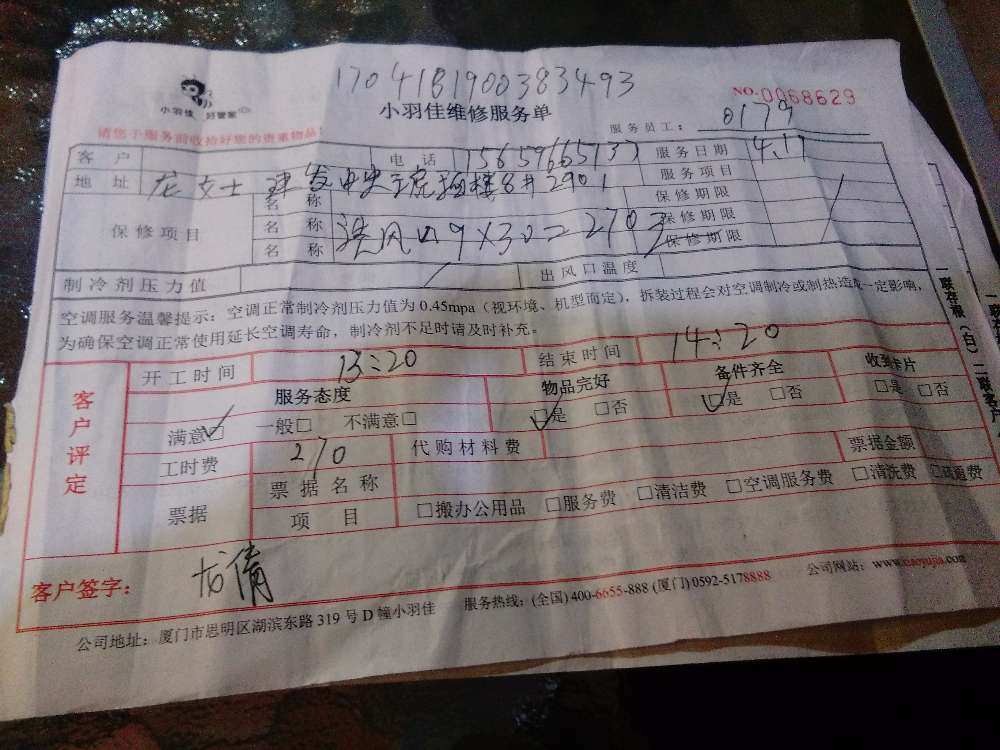 1704181900383493
NO.0068629
小羽佳 好管家
小羽佳维修服务单
请您于服务前收拾好您的贵重物品!
服务员工: 0179
客 户 电 话 15659665137 服务日期 4.17
地 址 龙女士 建发中央 8# 2901 服务项目
保修项目 名 称 保修期限
名 称 洗风口 9×30=270 保修期限
名 称 保修期限
制冷剂压力值 出风口温度
空调服务温馨提示: 空调正常制冷剂压力值为 0.45mpa (视环境、机型而定), 拆装过程会对空调制冷或制热造成一定影响,
为确保空调正常使用延长空调寿命, 制冷剂不足时请及时补充。
客户评定
开工时间 13:20 结束时间 14:20
服务态度 物品完好 备件齐全 收到卡片
满意☑ 一般□ 不满意□ ☑是 □否 ☑是 □否 □是 □否
工时费 270 代购材料费 票据金额
票据 票据名称
项 目 □搬办公用品 □服务费 □清洁费 □空调服务费 □清洗费 □疏通费
客户签字: 龙倩
公司地址: 厦门市思明区湖滨东路 319 号 D 幢小羽佳 服务热线: (全国) 400-6655-888 (厦门) 0592-5178888 公司网站: www.xiaoyujia.com
一联存根(白) 二联客户